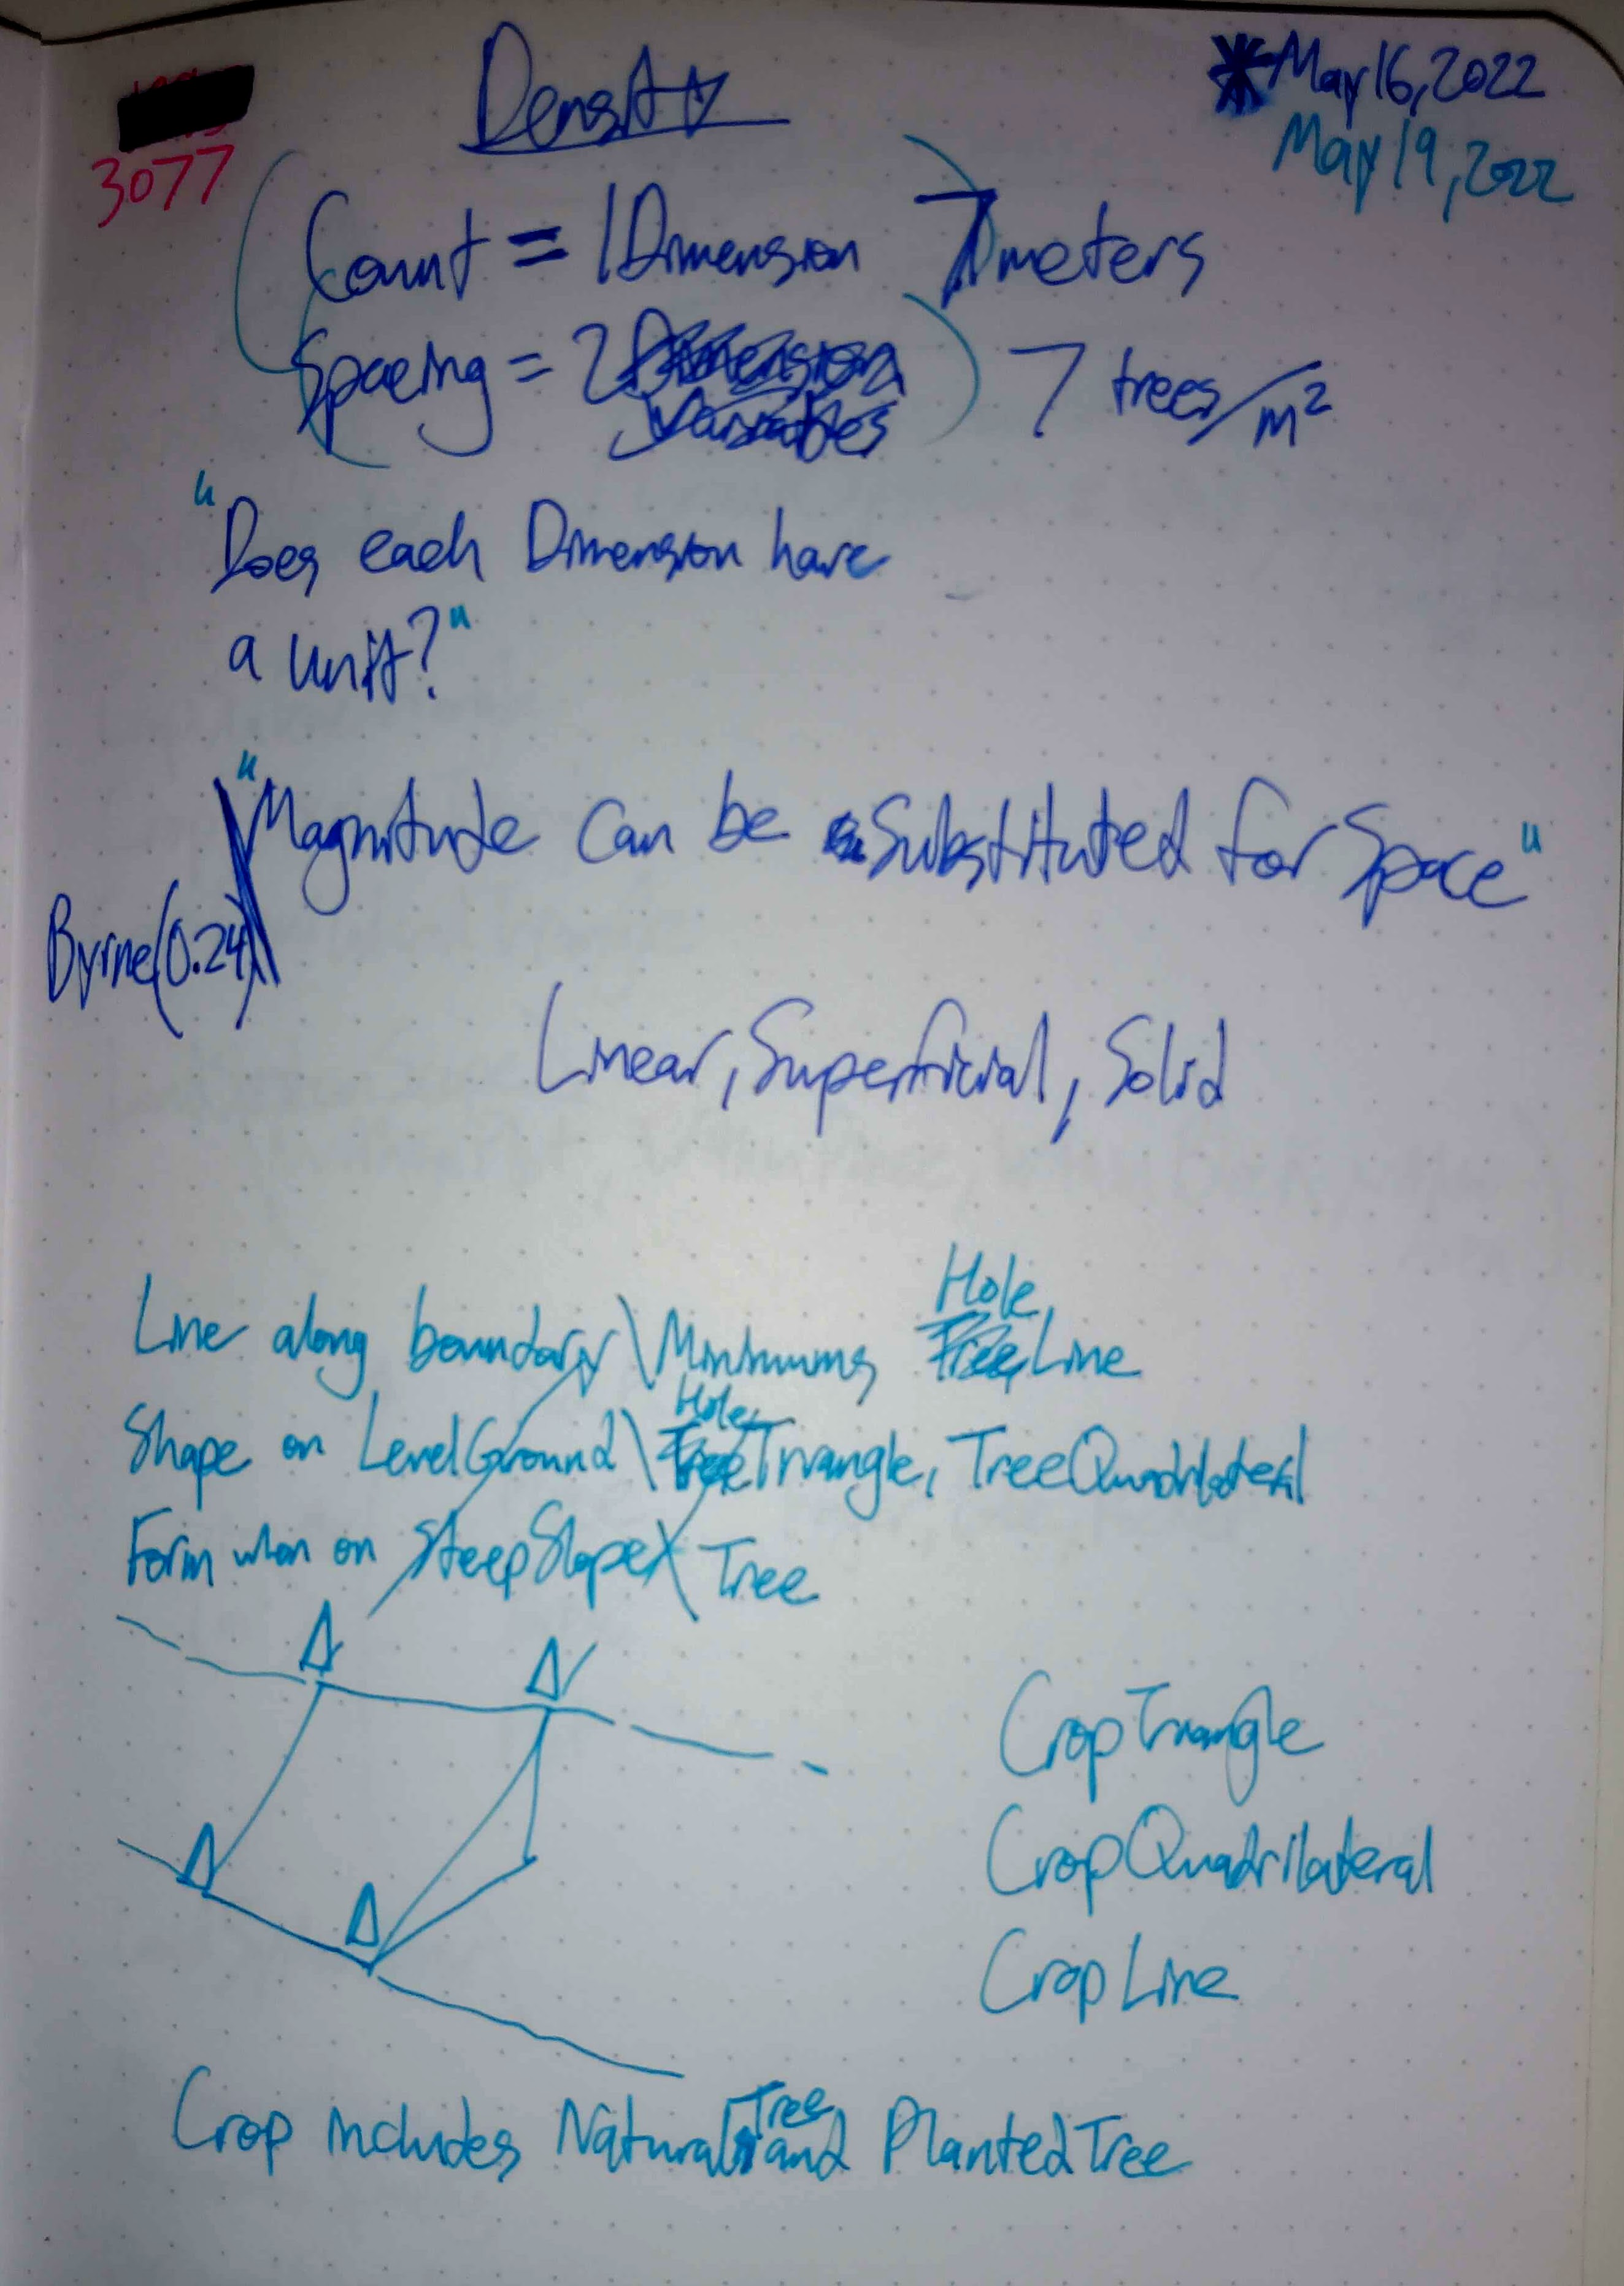 Density
*May 16, 2022
May 19, 2022
3077
Count = 1 Dimension 7 meters
Spacing = 2 Dimension 7 trees/m²
Variables
"Does each Dimension have
a unit?"
"Magnitude can be Substituted for Space"
Byrne(0.24)
Linear, Superficial, Solid
Hole
Line along boundary \ Minimums TreeLine
Hole
Shape on LevelGround \ TreeTriangle, TreeQuadrilateral
Form when on SteepSlope \ Tree
CropTriangle
CropQuadrilateral
CropLine
Tree
Crop includes Natural and PlantedTree